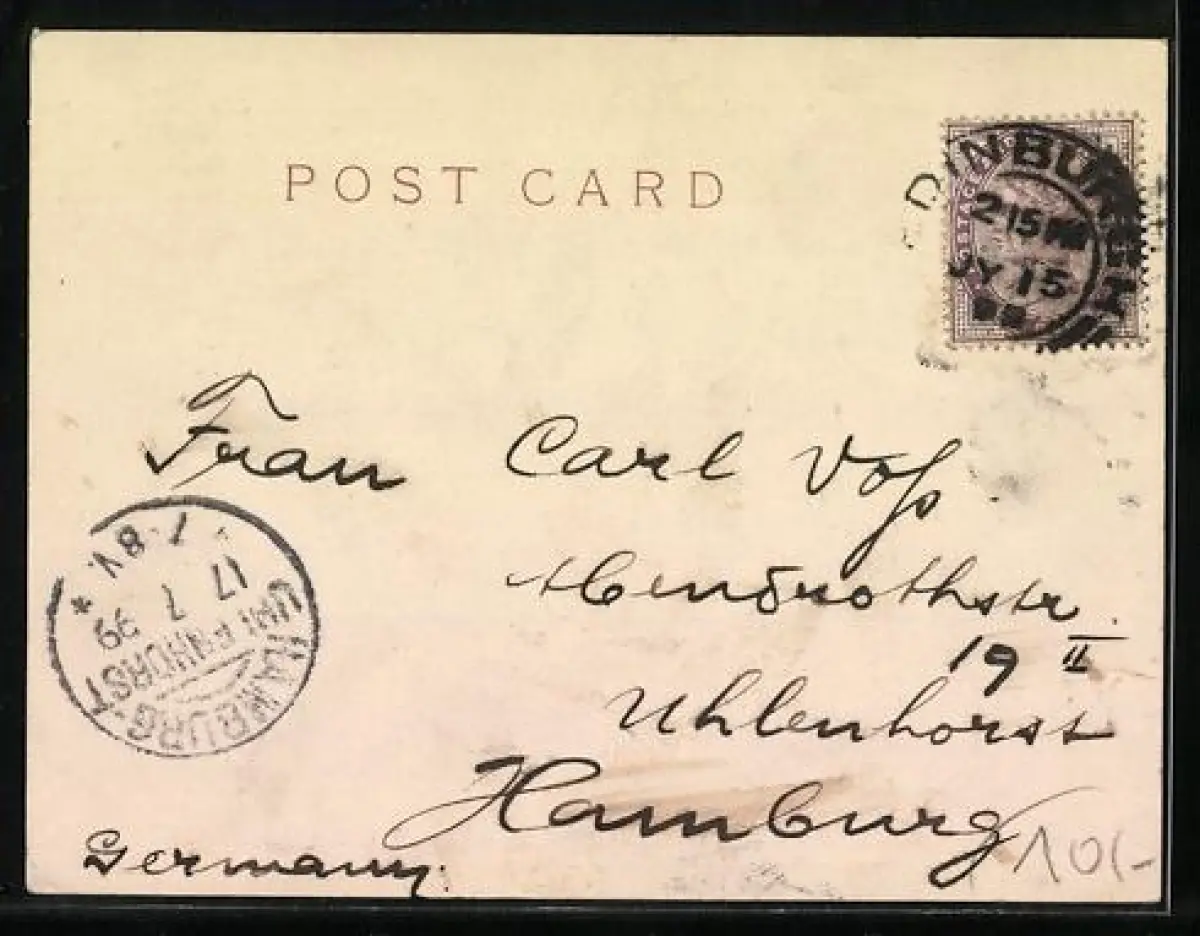 POST CARD
EDINBURGH
2 15 PM
JY 15
99
Frau Carl Voß
Hendrothstr.
19 II
Uhlenhorst
Hamburg
Germany.
HAMBURG
UHLENHORST
17 7 99
7-8V.
*
10/-